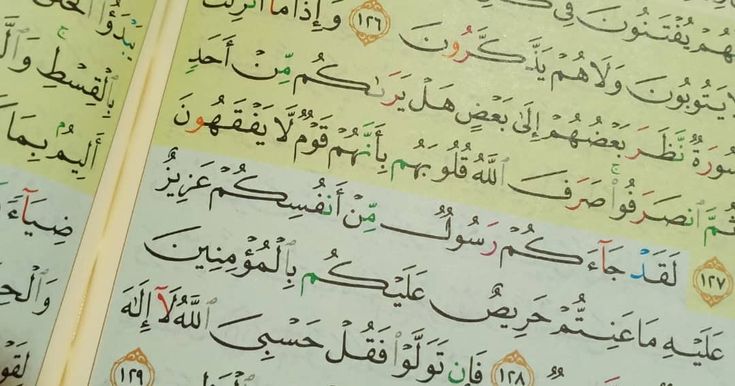 يُفْتَنُونَ فِى
يَتُوبُونَ وَلَا هُمْ يَذَّكَّرُونَ ١٢٦ وَإِذَا مَآ أُنزِلَتْ
سُورَةٌ نَّظَرَ بَعْضُهُمْ إِلَىٰ بَعْضٍ هَلْ يَرَىٰكُم مِّنْ أَحَدٍ
ثُمَّ ٱنصَرَفُوا۟ ۚ صَرَفَ ٱللَّهُ قُلُوبَهُم بِأَنَّهُمْ قَوْمٌ لَّا يَفْقَهُونَ
١٢٧ لَقَدْ جَآءَكُمْ رَسُولٌ مِّنْ أَنفُسِكُمْ عَزِيزٌ
عَلَيْهِ مَا عَنِتُّمْ حَرِيصٌ عَلَيْكُم بِٱلْمُؤْمِنِينَ
١٢٨ فَإِن تَوَلَّوْا۟ فَقُلْ حَسْبِىَ ٱللَّهُ لَآ إِلَٰهَ
١٢٩
يَبْدَؤُا۟
بِٱلْقِسْطِ
أَلِيمٌ بِمَا
ضِيَآءً